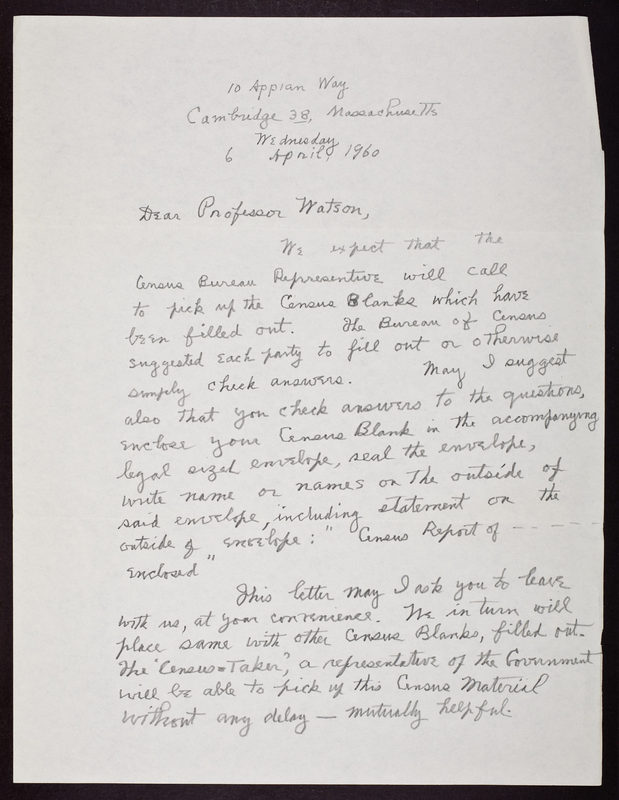 10 Appian Way
Cambridge 38, Massachusetts
Wednesday
6 April, 1960
Dear Professor Watson,
We expect that the
Census Bureau Representive will call
to pick up the Census Blanks which have
been filled out. The Bureau of Census
suggested each party to fill out or otherwise
simply check answers. May I suggest
also that you check answers to the questions,
enclose your Census Blank in the accompanying
legal sized envelope, seal the envelope,
write name or names on the outside of
said envelope, including statement on the
outside of envelope: "Census Report of - - - -
enclosed"
This letter may I ask you to leave
with us, at your convenience. We in turn will
place same with other Census Blanks, filled out.
The "Census=Taker", a representative of the Government
will be able to pick up this Census Material
without any delay — mutually helpful.